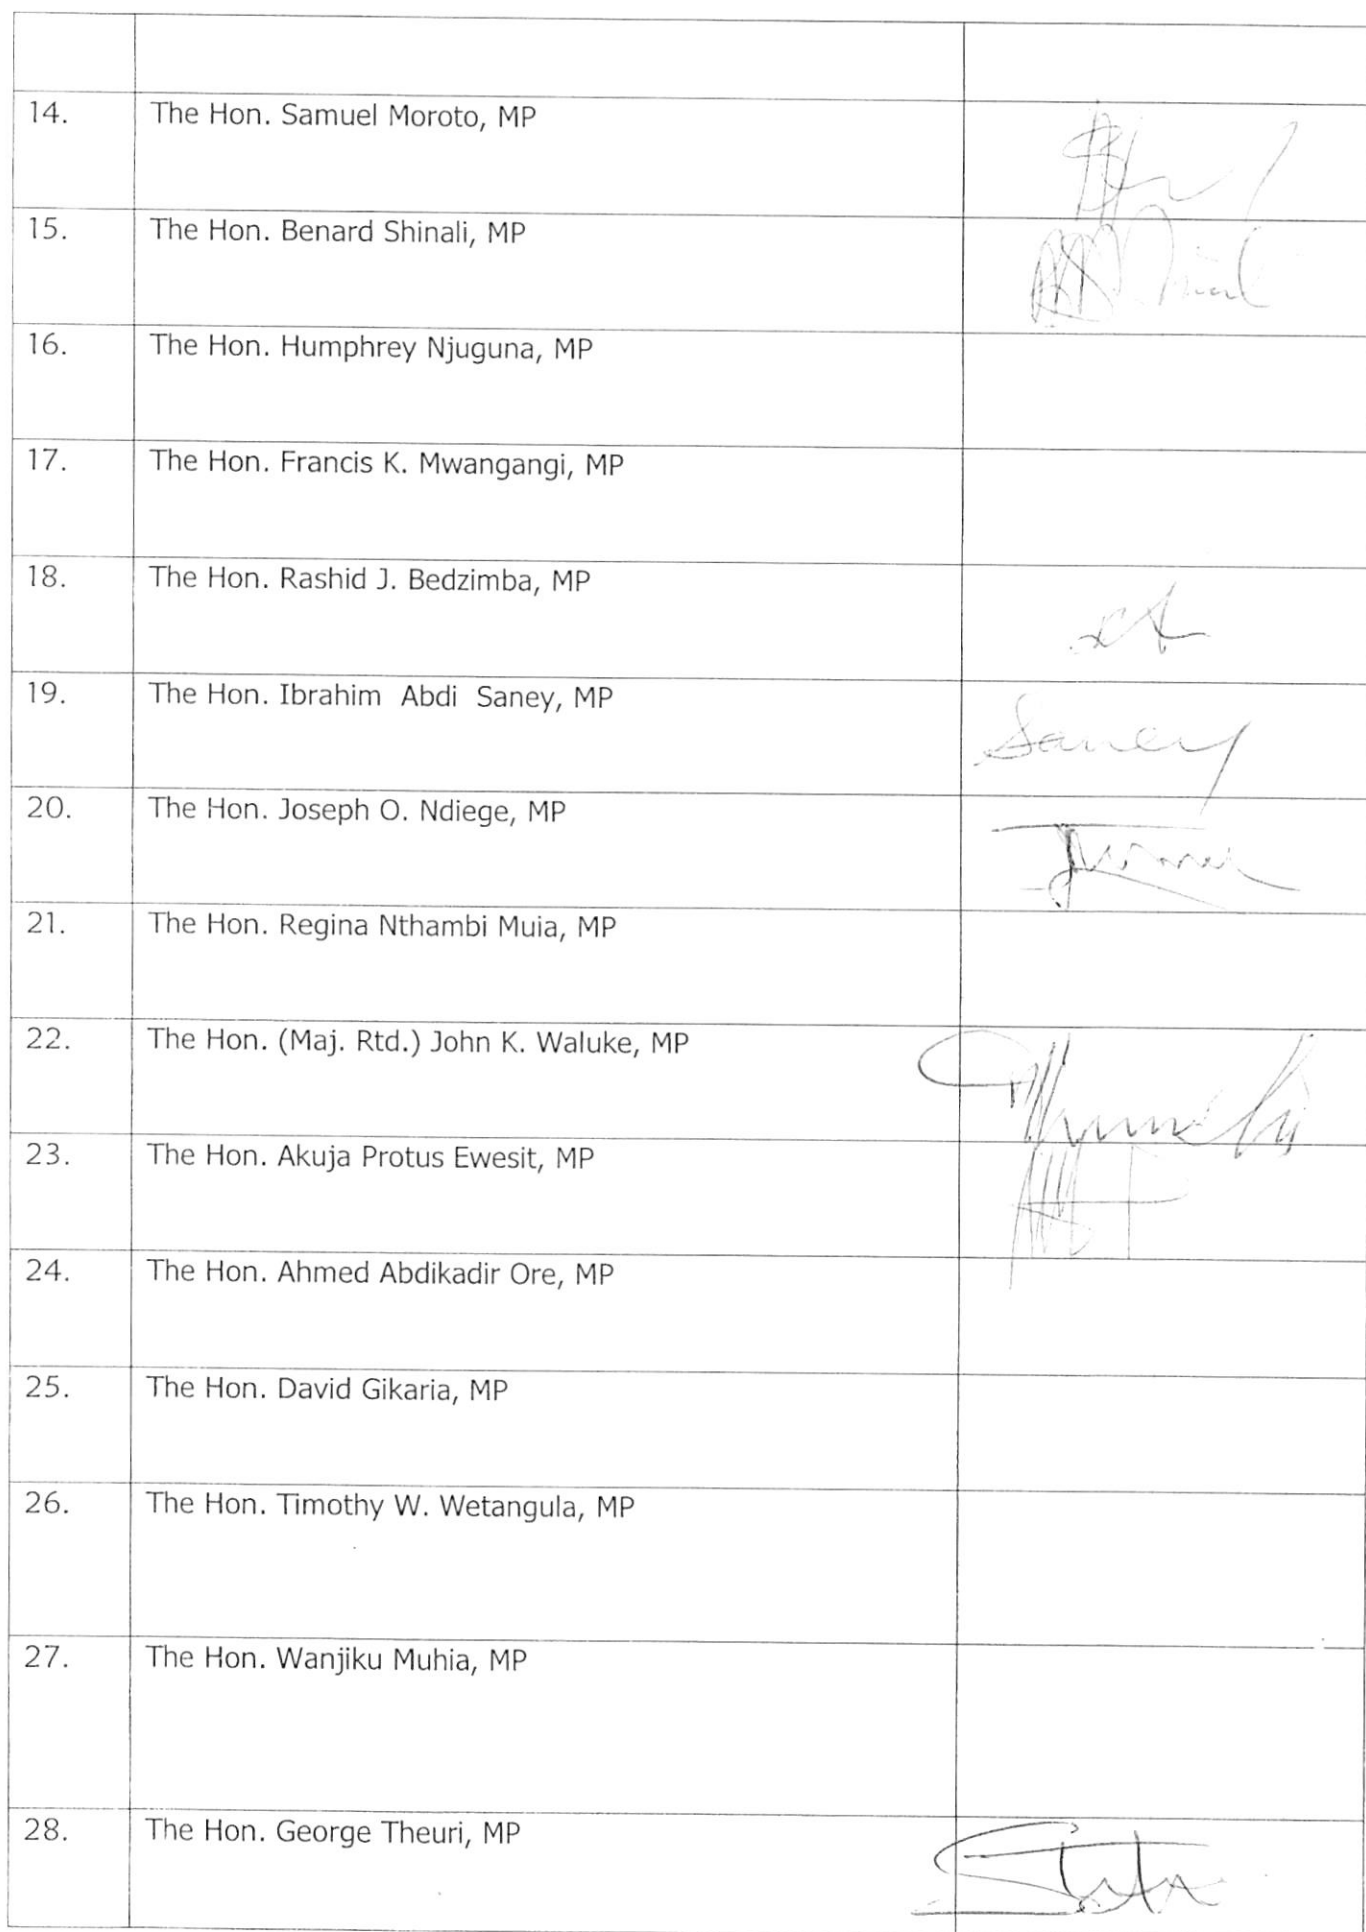 14. The Hon. Samuel Moroto, MP
15. The Hon. Benard Shinali, MP
16. The Hon. Humphrey Njuguna, MP
17. The Hon. Francis K. Mwangangi, MP
18. The Hon. Rashid J. Bedzimba, MP
19. The Hon. Ibrahim Abdi Saney, MP Saney
20. The Hon. Joseph O. Ndiege, MP
21. The Hon. Regina Nthambi Muia, MP
22. The Hon. (Maj. Rtd.) John K. Waluke, MP
23. The Hon. Akuja Protus Ewesit, MP
24. The Hon. Ahmed Abdikadir Ore, MP
25. The Hon. David Gikaria, MP
26. The Hon. Timothy W. Wetangula, MP
27. The Hon. Wanjiku Muhia, MP
28. The Hon. George Theuri, MP